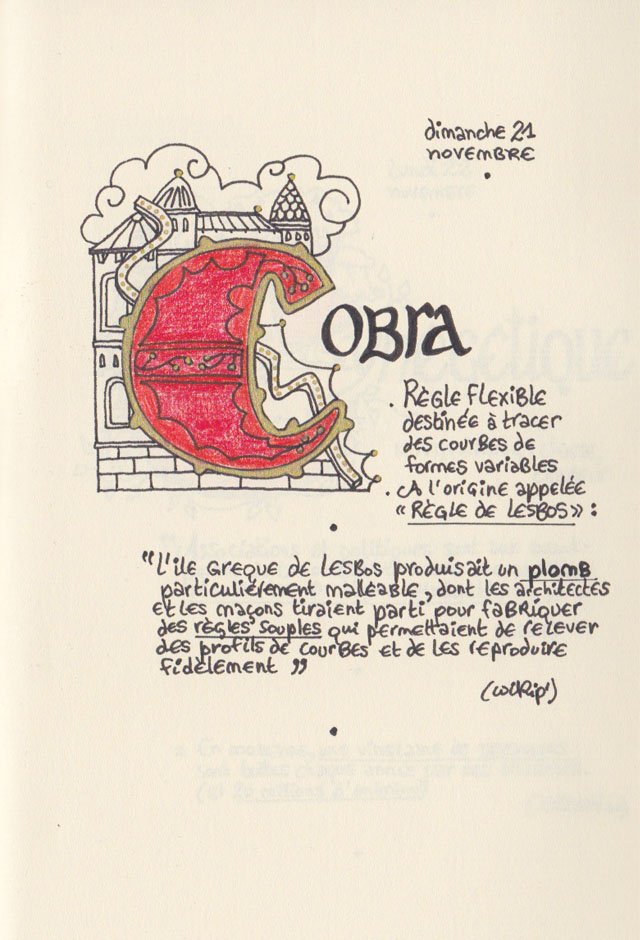 dimanche 21
novembre
Cobra
. Règle flexible
destinée à tracer
des courbes de
formes variables
. A l'origine appelée
« Règle de Lesbos » :
"L'ile greque de Lesbos produisait un plomb
particulièrement malléable, dont les architectes
et les maçons tiraient parti pour fabriquer
des règles souples qui permettaient de relever
des profils de courbes et de les reproduire
fidèlement"